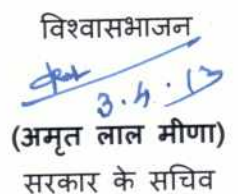 विश्वासभाजन
3.4.13
(अमृत लाल मीणा)
सरकार के सचिव